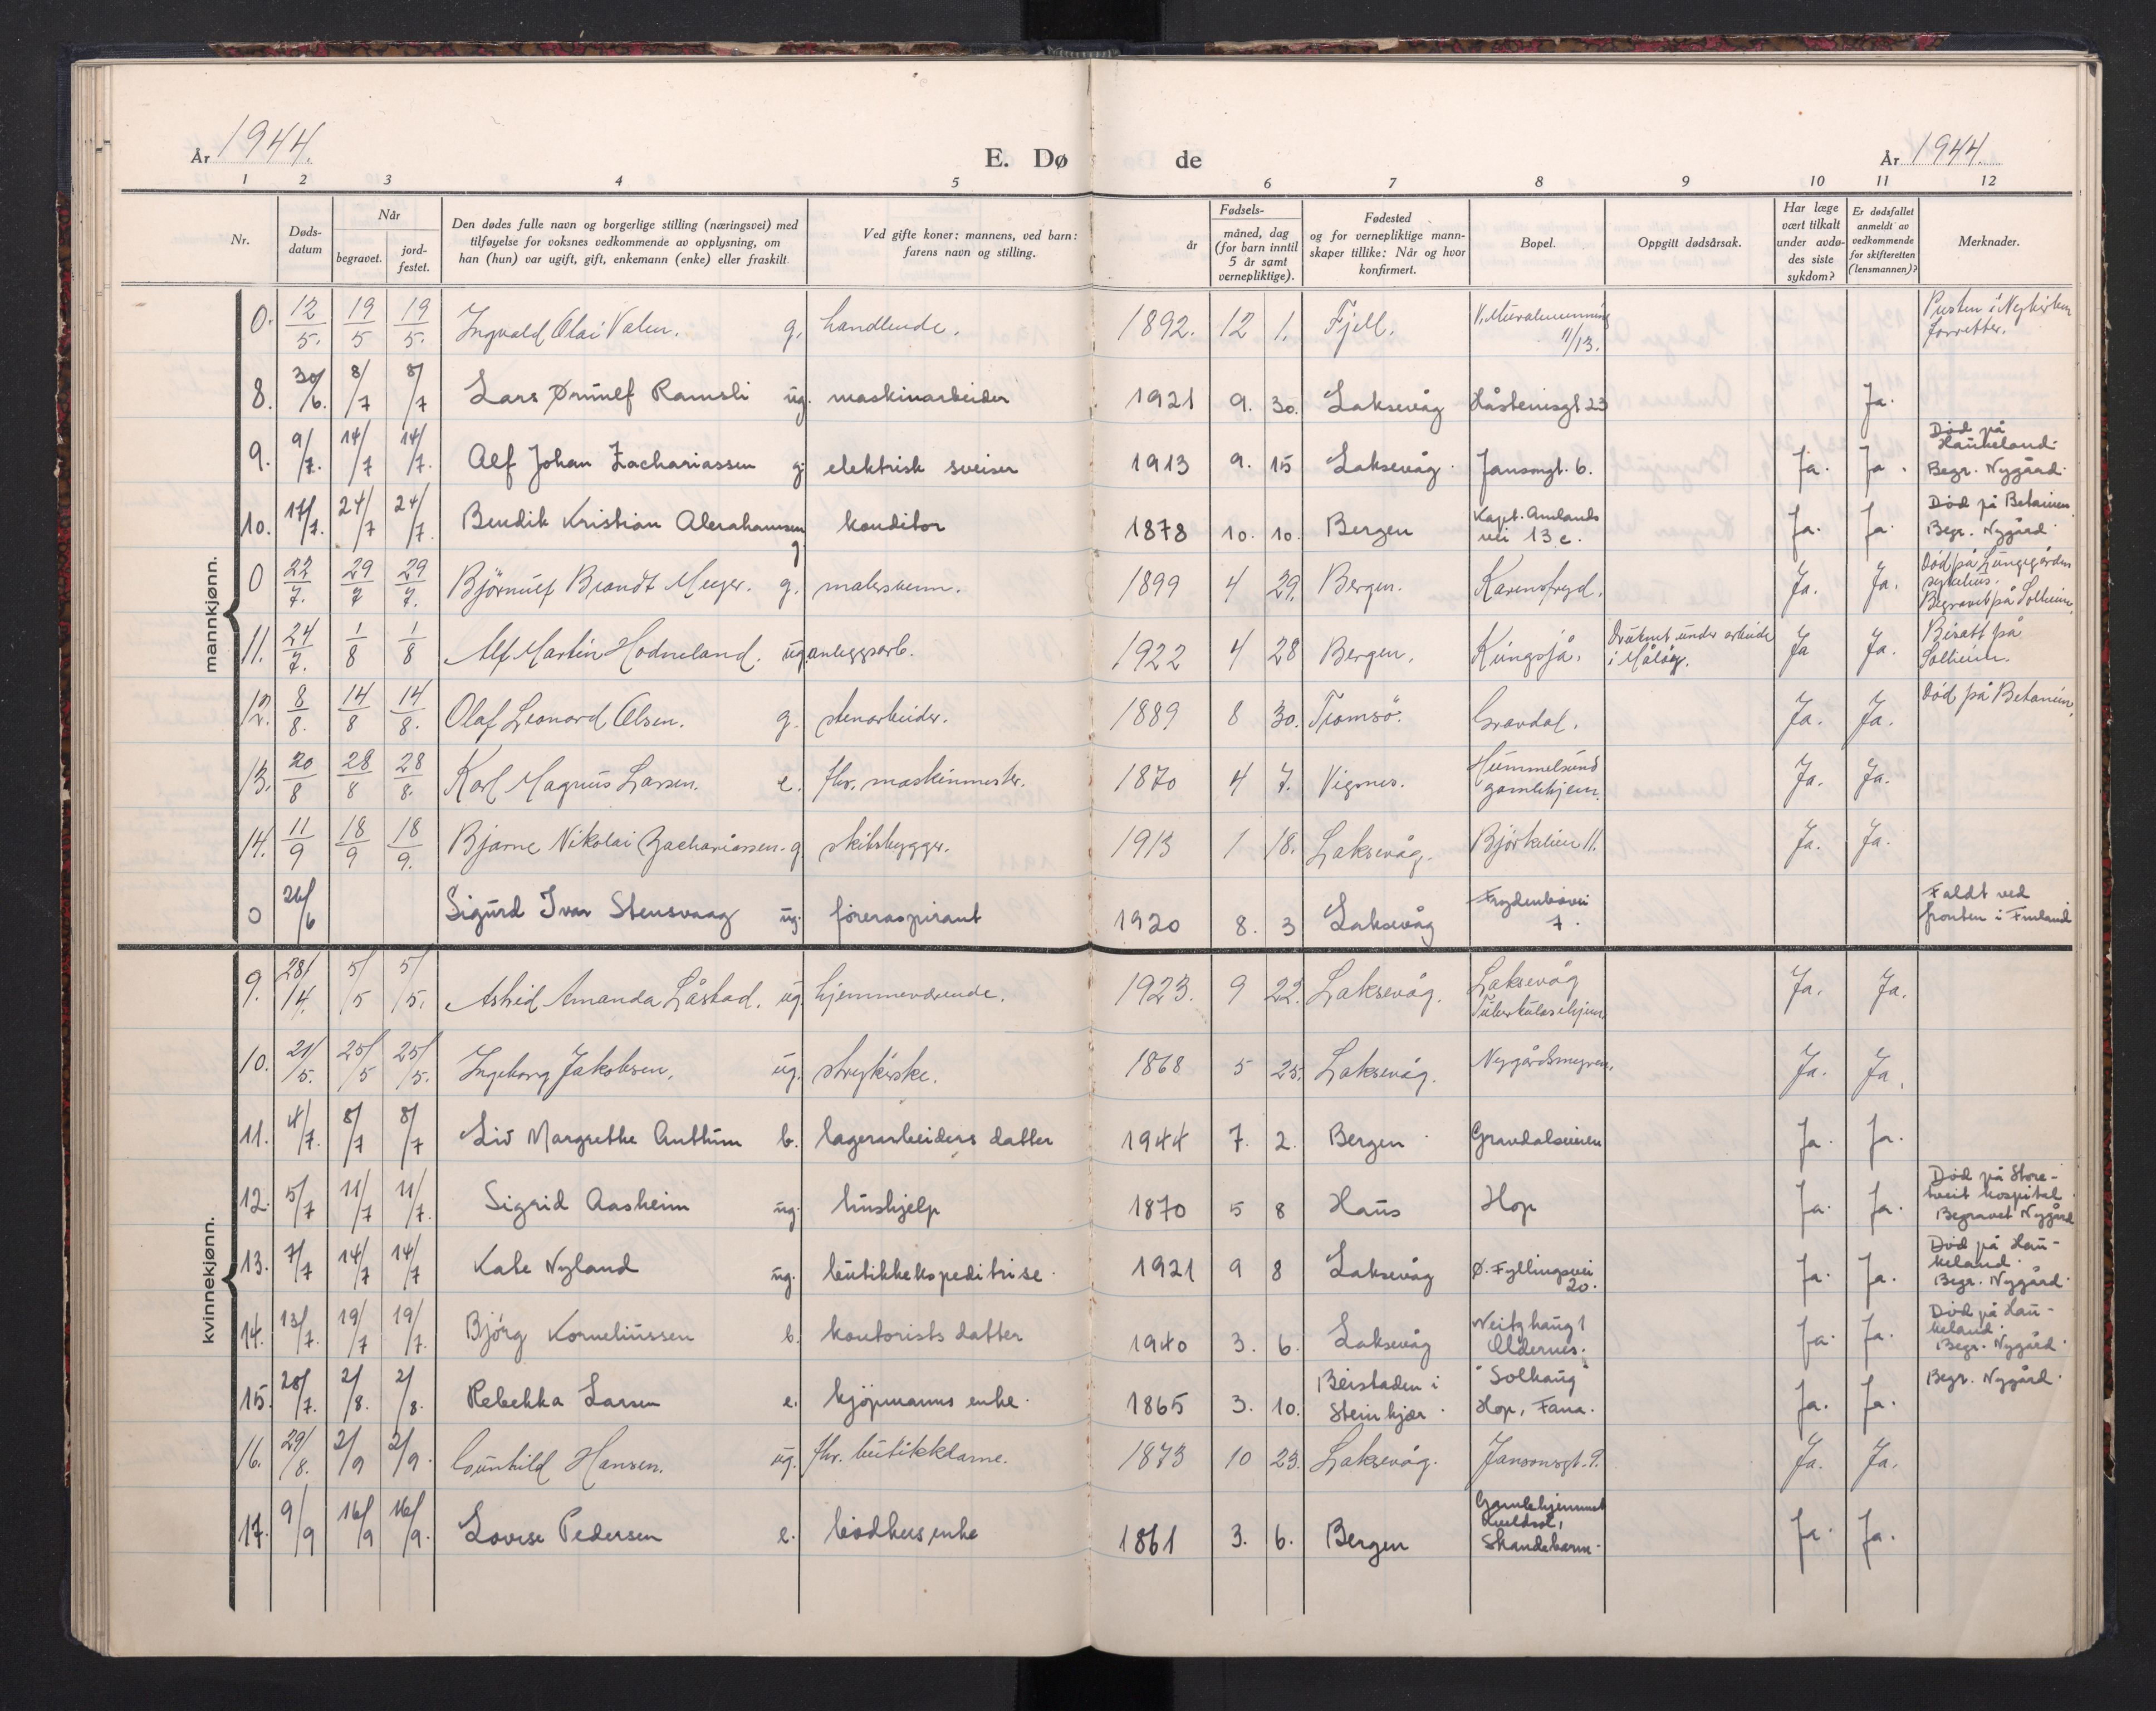 År 1944.
E. Døde
År 1944
1 2 3 4 5 6 7 8 9 10 11 12
Nr.
Døds-
datum
Når
begravet.
jord-
festet.
Den dødes fulle navn og borgerlige stilling (næringsvei) med
tilføyelse for voksnes vedkommende av opplysning, om
han (hun) var ugift, gift, enkemann (enke) eller fraskilt.
Ved gifte koner: mannens, ved barn:
farens navn og stilling.
Fødsels-
år
måned, dag
(for barn inntil
5 år samt
vernepliktige).
Fødested
og for vernepliktige mann-
skaper tillike: Når og hvor
konfirmert.
Bopel.
Oppgitt dødsårsak.
Har læge
vært tilkalt
under avdø-
des siste
sykdom?
Er dødsfallet
anmeldt av
vedkommende
for skifteretten
(lensmannen)?
Merknader.
mannkjønn.
0. 12/5. 19/5 19/5. Ingvald Olai Valen. g. handlende. 1892. 12 1. Fjell. 11/13.
forretter.
8. 30/6. 8/7 8/7 Lars Ørnulf Ramsli ug. maskinarbeider 1921 9. 30. Laksevåg Håsteinsgt 23 Ja.
9. 9/7. 14/7 14/7. Alf Johan Zachariassen g. elektrisk sveiser 1913 9. 15 Laksevåg Jansongt. 6. Ja. Ja. Død på
Haukeland.
Begr. Nygård.
10. 17/7. 24/7 24/7. Bendik Kristian Abrahamsen g. konditor 1878 10. 10. Bergen Kapt. Amlands
vei 13 c. Ja. Ja. Død på Betanien
Begr. Nygård
0 22/7. 29/7 29/7. Bjørnulf Brandt Meyer. g. malersvenn. 1899 4 29. Bergen. Karensfryd. Ja. Ja. Død på Lungegården
sykehus.
Begravet på Solheim.
11. 24/7. 1/8 1/8 Alf Martin Hodneland. ug. anleggsarb. 1922 4 28 Bergen. Kungsjå. Druknet under arbeide
i Måløy. Ja Ja. Bisatt på
Solheim.
12. 8/8. 14/8 14/8. Olaf Leonard Olsen. g. stenarbeider. 1889 8 30. Tromsö. Gravdal. Ja. Ja. Död på Betanien.
13. 20/8 28/8 28/8. Karl Magnus Larsen. e. fhv. maskinmester. 1870 4 7. Vigsnes. Hummelsund
gamlehjem. Ja. Ja.
14. 11/9 18/9 18/9. Bjarne Nikolai Zachariassen. g. skibsbygger. 1913 1 18. Laksevåg. Björkelien 11. Ja. Ja.
0 26/6 Sigurd Ivar Stensvaag ug. föreraspirant 1920 8. 3 Laksevåg Frydenbövei
7. Faldt ved
fronten i Finland
kvinnekjønn.
9. 28/4. 5/5 5/5. Astrid Amanda Låstad. ug. hjemmeværende. 1923. 9 22. Laksevåg. Laksevåg
Tuberkulosehjem Ja. Ja.
10. 21/5. 25/5 25/5. Ingeborg Jakobsen. ug. strykerske. 1868 5 25. Laksevåg. Nygårdsmyren. Ja. Ja.
11. 4/7. 8/7 8/7 Liv Margrethe Anthun b. lagerarbeiders datter 1944 7. 2. Bergen Gravdalsveien Ja. Ja.
12. 5/7 11/7 11/7. Sigrid Aasheim ug. hushjelp 1870 5 8 Haus Hop Ja. Ja. Död på Store-
tveit hospital.
Begravet Nygård
13. 7/7 14/7 14/7 Kate Nyland ug. butikkekspeditrise. 1921 9 8 Laksevåg Ø. Fyllingsvei
20. Ja. Ja. Död på Hau-
keland.
Begr. Nygård.
14. 13/7. 19/7 19/7. Björg Korneliussen b. kontorists datter 1940 3. 6. Laksevåg
Oldernes. Ja. Ja. Död på Hau-
keland.
Begr. Nygård.
15. 28/7. 2/8. 2/8. Rebekka Larsen e. kjöpmanns enke. 1865 3. 10. Beistaden i
Steinkjær. "Solhaug"
Hop, Fana. Ja. Ja. Begr. Nygård.
16. 29/8. 2/9 2/9. Gunhild Hansen. ug. fhv. butikkdame. 1873 10 23. Laksevåg. Jansonsgt. 9. Ja. Ja.
17. 9/9 16/9 16/9. Lovise Pedersen e. enke 1861 3. 6. Bergen Gamlehjemmet
Kveldsol,
Strandebarm. Ja. Ja.